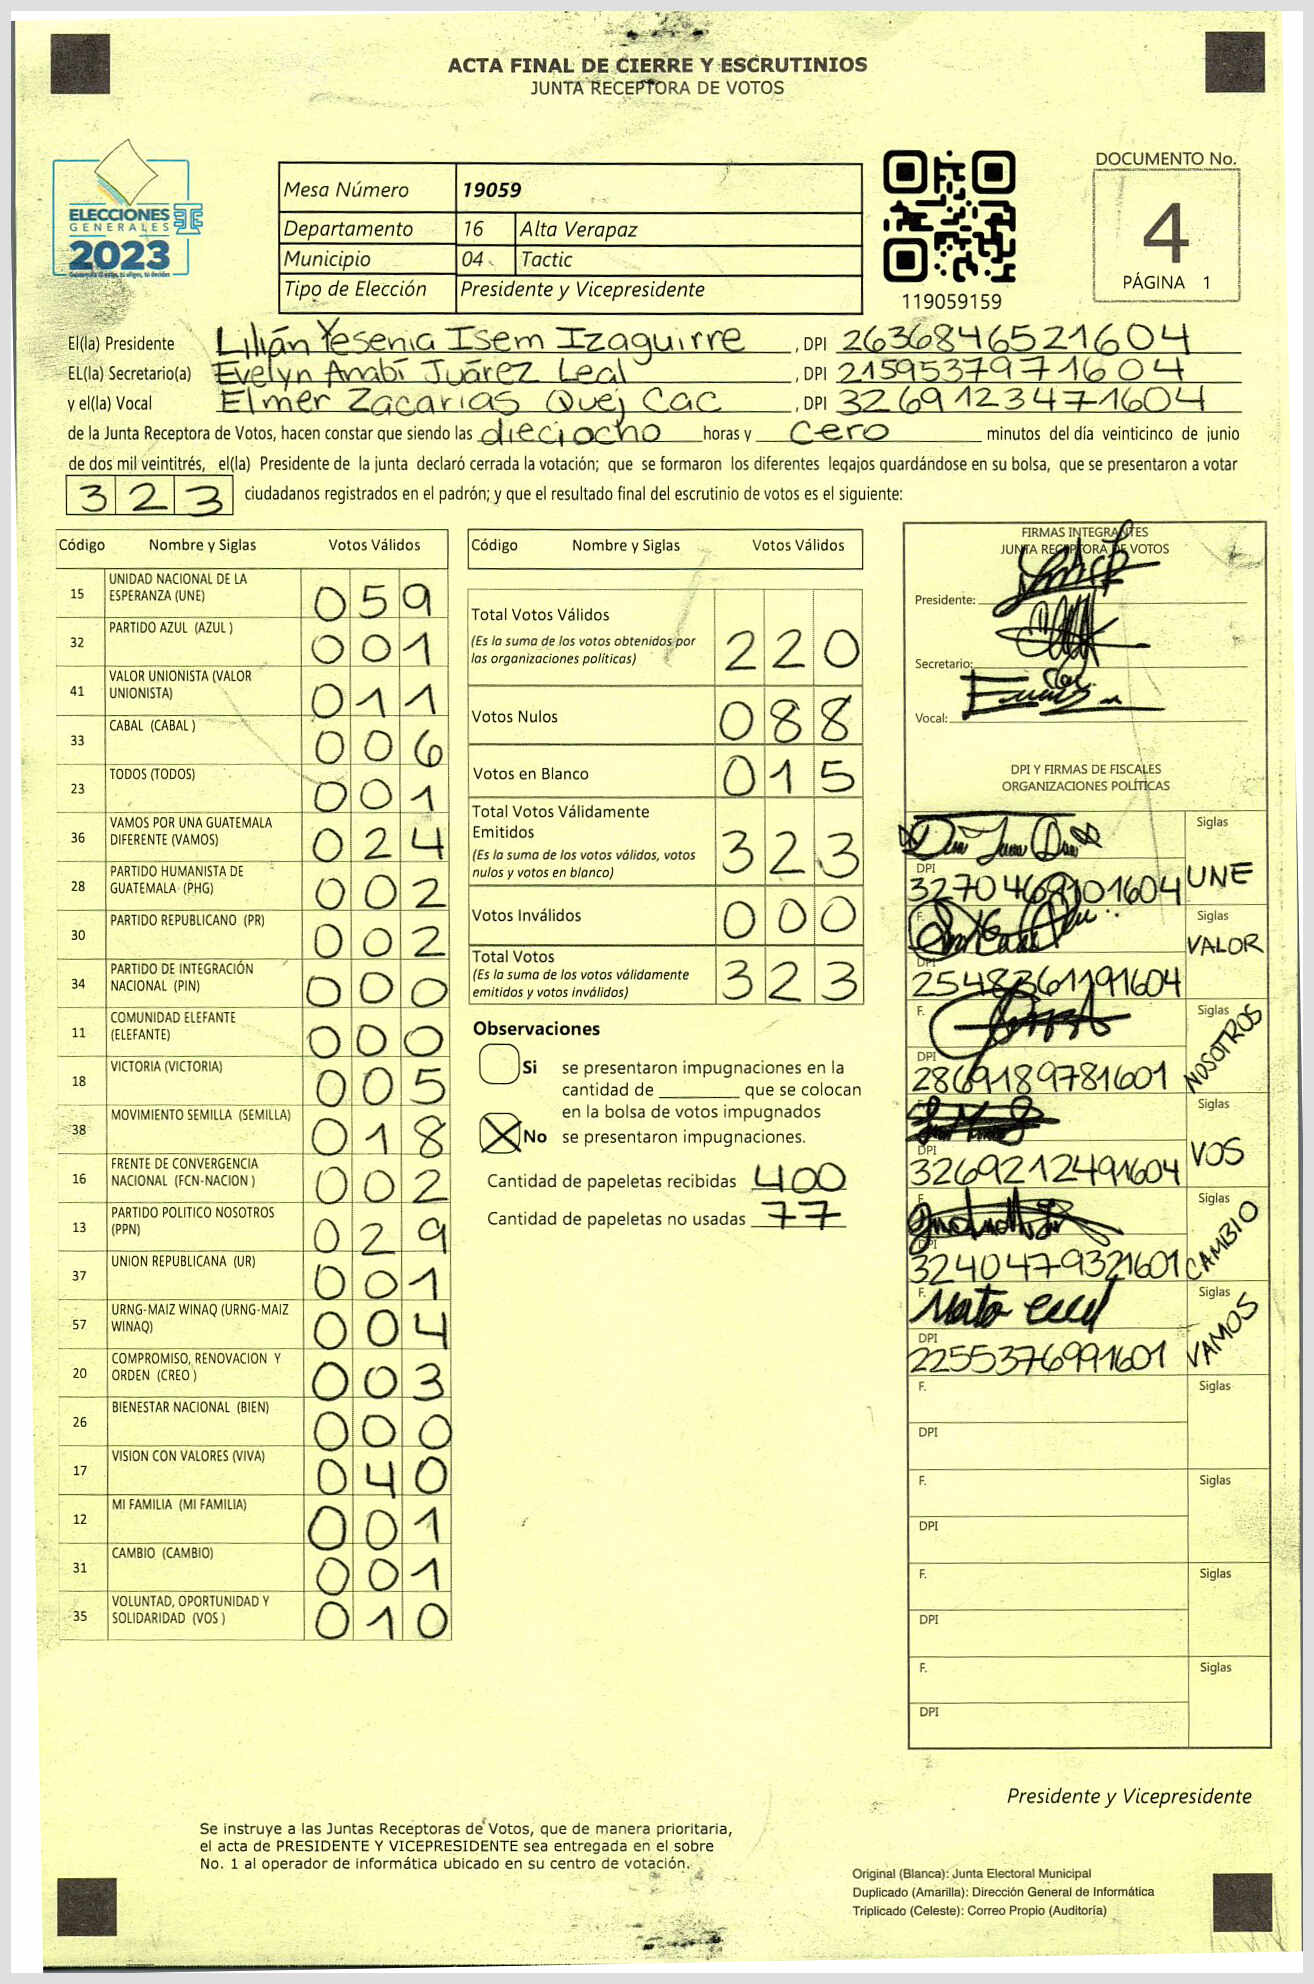 ACTA FINAL DE CIERRE Y ESCRUTINIOS
JUNTA RECEPTORA DE VOTOS
ELECCIONES
GENERALES
2023
Mesa Número 19059
Departamento 16 Alta Verapaz
Municipio 04 Tactic
Tipo de Elección Presidente y Vicepresidente
119059159
DOCUMENTO No.
4
PÁGINA 1
El(la) Presidente Lilián Yesenia Isem Izaguirre, DPI 2636846521604
EL(la) Secretario(a) Evelyn Anabí Juárez Leal, DPI 2159537971604
y el(la) Vocal Elmer Zacarías Quej Cac, DPI 3269123471604
de la Junta Receptora de Votos, hacen constar que siendo las dieciocho horas y cero minutos del día veinticinco de junio
de dos mil veintitrés, el(la) Presidente de la junta declaró cerrada la votación; que se formaron los diferentes legajos guardándose en su bolsa, que se presentaron a votar
323 ciudadanos registrados en el padrón; y que el resultado final del escrutinio de votos es el siguiente:
Código Nombre y Siglas Votos Válidos
15 UNIDAD NACIONAL DE LA ESPERANZA (UNE) 059
32 PARTIDO AZUL (AZUL ) 001
41 VALOR UNIONISTA (VALOR UNIONISTA) 011
33 CABAL (CABAL ) 006
23 TODOS (TODOS) 001
36 VAMOS POR UNA GUATEMALA DIFERENTE (VAMOS) 024
28 PARTIDO HUMANISTA DE GUATEMALA (PHG) 002
30 PARTIDO REPUBLICANO (PR) 002
34 PARTIDO DE INTEGRACIÓN NACIONAL (PIN) 000
11 COMUNIDAD ELEFANTE (ELEFANTE) 000
18 VICTORIA (VICTORIA) 005
38 MOVIMIENTO SEMILLA (SEMILLA) 018
16 FRENTE DE CONVERGENCIA NACIONAL (FCN-NACION ) 002
13 PARTIDO POLITICO NOSOTROS (PPN) 029
37 UNION REPUBLICANA (UR) 001
57 URNG-MAIZ WINAQ (URNG-MAIZ WINAQ) 004
20 COMPROMISO, RENOVACION Y ORDEN (CREO ) 003
26 BIENESTAR NACIONAL (BIEN) 000
17 VISION CON VALORES (VIVA) 040
12 MI FAMILIA (MI FAMILIA) 001
31 CAMBIO (CAMBIO) 001
35 VOLUNTAD, OPORTUNIDAD Y SOLIDARIDAD (VOS ) 010
Código Nombre y Siglas Votos Válidos
Total Votos Válidos
(Es la suma de los votos obtenidos por las organizaciones políticas) 220
Votos Nulos 088
Votos en Blanco 015
Total Votos Válidamente Emitidos
(Es la suma de los votos válidos, votos nulos y votos en blanco) 323
Votos Inválidos 000
Total Votos
(Es la suma de los votos válidamente emitidos y votos inválidos) 323
Observaciones
Si se presentaron impugnaciones en la
cantidad de ________ que se colocan
en la bolsa de votos impugnados
No se presentaron impugnaciones.
Cantidad de papeletas recibidas 400
Cantidad de papeletas no usadas 77
FIRMAS INTEGRANTES
JUNTA RECEPTORA DE VOTOS
Presidente:
Secretario:
Vocal:
DPI Y FIRMAS DE FISCALES
ORGANIZACIONES POLÍTICAS
Siglas
DPI
UNE
F. Siglas
VALOR
DPI
2548361191604
F. Siglas
NOSOTROS
DPI
2869189781601
F. Siglas
DPI
VOS
3269212491604
F. Siglas
DPI
CAMBIO
3240479321601
F. Siglas
DPI
VAMOS
2255376991601
F. Siglas
DPI
F. Siglas
DPI
F. Siglas
DPI
F. Siglas
DPI
Presidente y Vicepresidente
Se instruye a las Juntas Receptoras de Votos, que de manera prioritaria,
el acta de PRESIDENTE Y VICEPRESIDENTE sea entregada en el sobre
No. 1 al operador de informática ubicado en su centro de votación.
Original (Blanca): Junta Electoral Municipal
Duplicado (Amarilla): Dirección General de Informática
Triplicado (Celeste): Correo Propio (Auditoría)